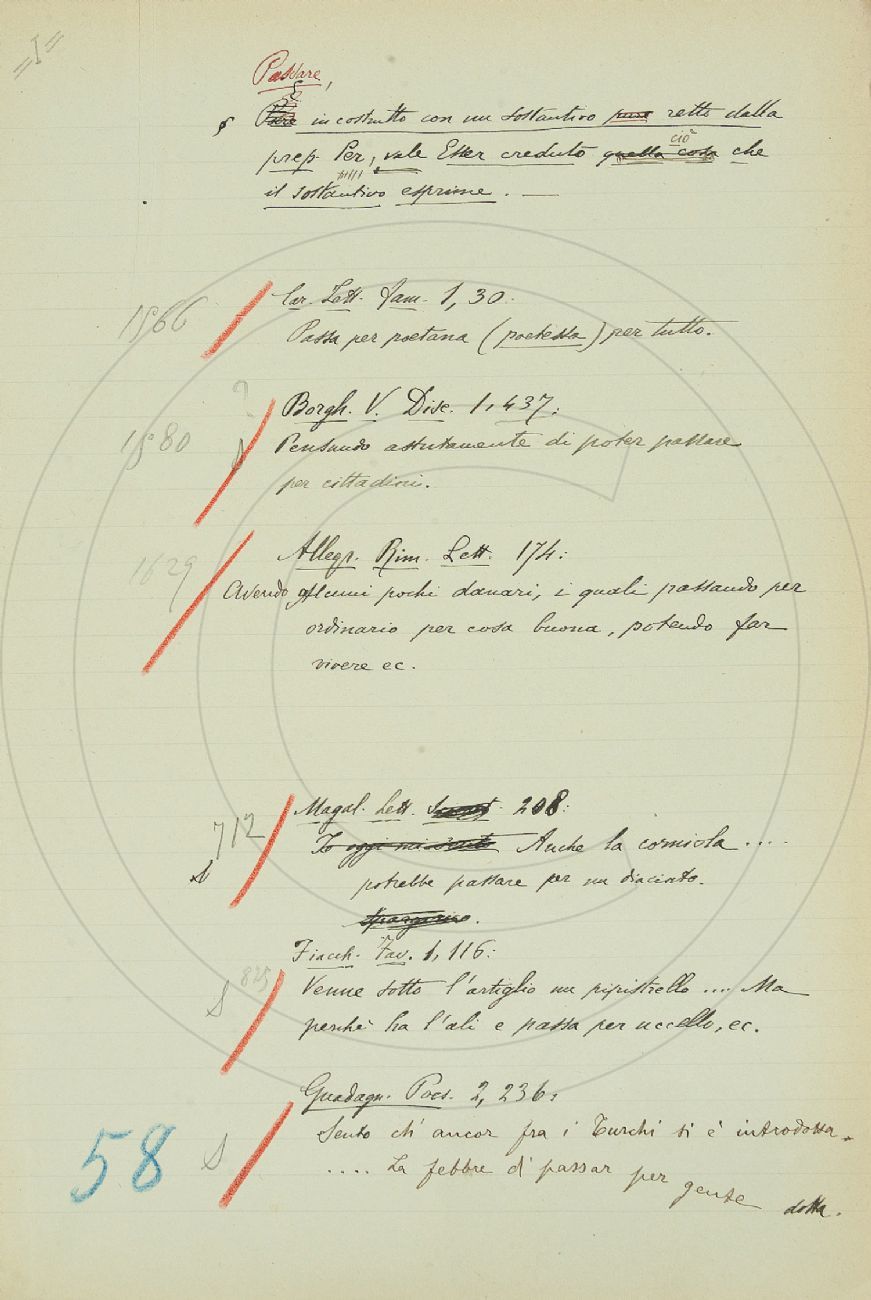 =I=
Passare,
§
§ Pare in costrutto con un sostantivo pure retto dalla
ciò
prep. Per, vale Esser creduto quella cosa che
il sostantivo esprime. —
1566 Car. Lett. fam. 1, 30:
Passa per poetana (poetessa) per tutto.
?
1580 Borgh. V. Disc. 1, 437:
S Pensando astutamente di poter passare
per cittadini.
1629 Allegr. Rim. Lett. 174:
Avendo alcuni pochi danari, i quali passando per
ordinario per cosa buona, potendo far
vivere ec.
712 Magal. Lett. 208:
S Io oggi mi sento Anche la corniola ....
potrebbe passare per un diacinto.
Fiacch. Fav. 1, 116:
S 825 Venne sotto l'artiglio un pipistrello .... Ma
perchè ha l'ali e passa per uccello, ec.
Guadagn. Poes. 2, 236:
58 S Sento ch' ancor fra i Turchi si è introdossa
.... La febbre di passar per gente dotta.